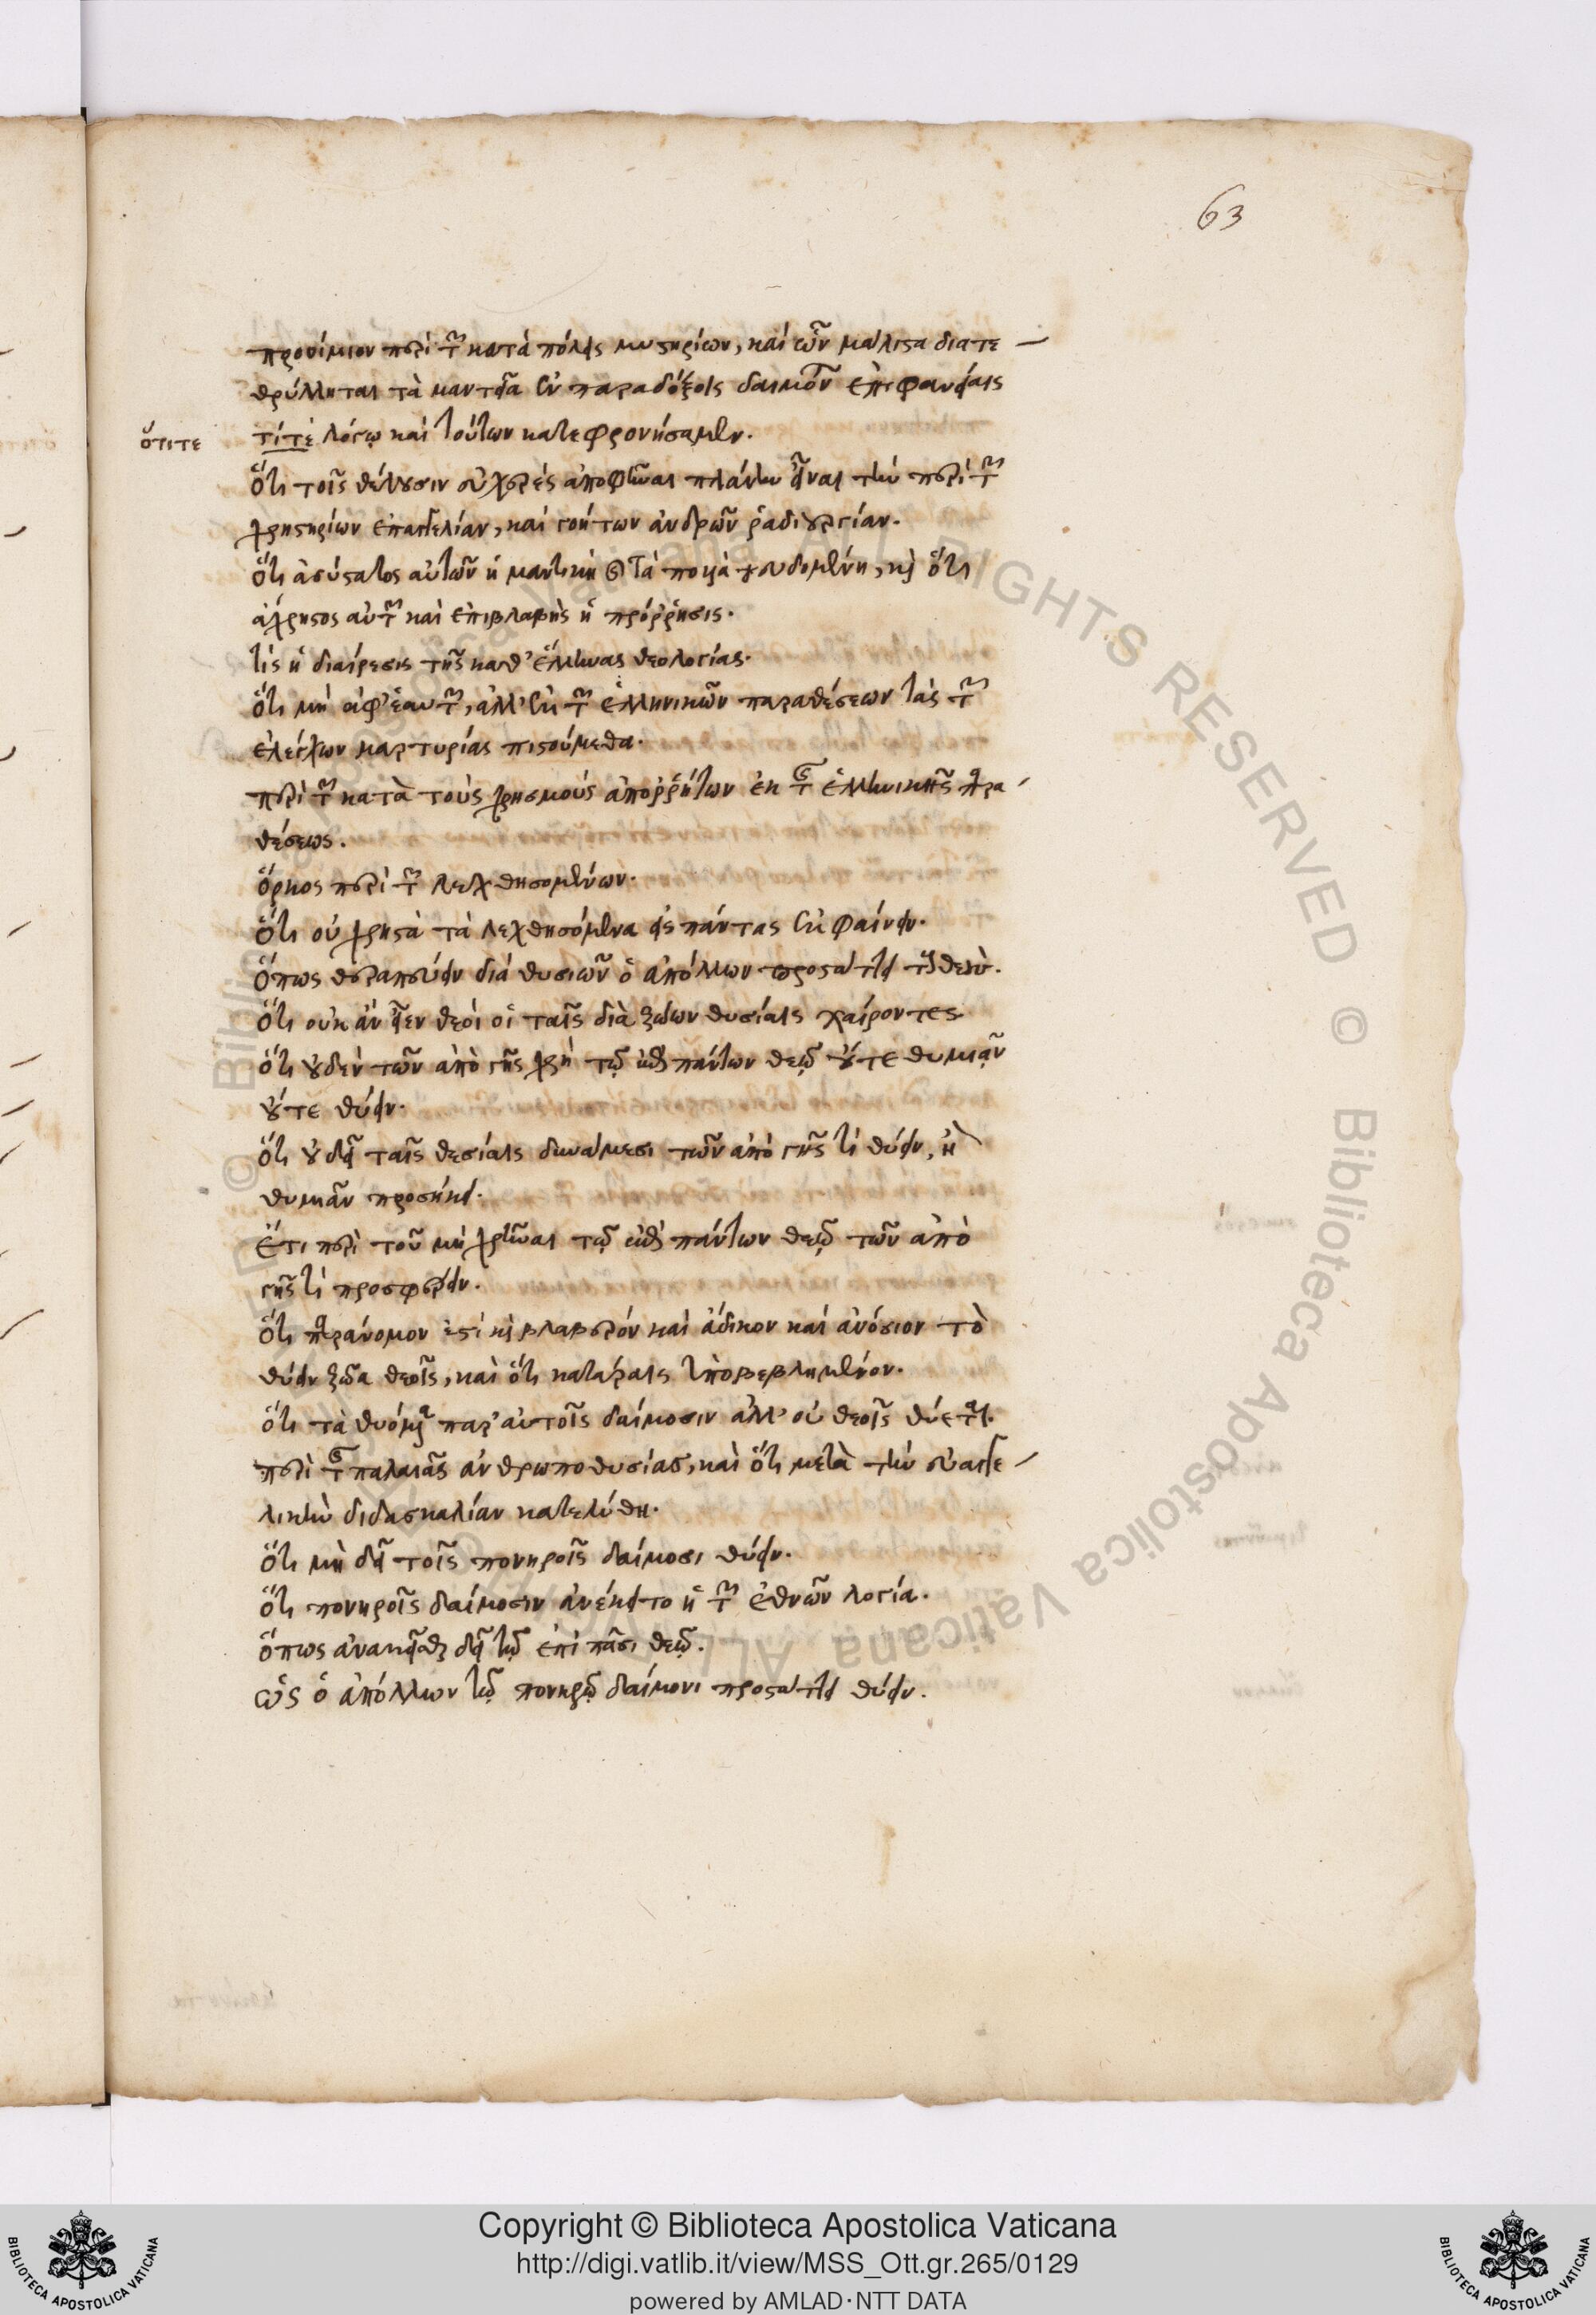 63
προοίμιον περὶ τῶν κατὰ πόλεις μυστηρίων, καὶ ὧν μάλιστα διατε –
θρύλληται τὰ μαντεῖα ἐν παραδόξοις δαιμόνων ἐπιφανείαις
ὅτιτε τίτε λόγω καὶ τούτων κατεφρονήσαμεν.
ὅτι τοῖς θέλουσιν εὐχερὲς ἀποφῆναι πλάνην εἶναι τὴν περὶ τῶν
χρηστηρίων ἐπαγγελίαν, καὶ γοήτων ἀνδρῶν ῥαδιουργίαν.
ὅτι ἀσύστατος αὐτῶν ἡ μαντικὴ τὰ πολλὰ ψευδομένη, καὶ ὅτι
ἄχρηστος αὐτῶν καὶ ἐπιβλαβὴς ἡ πρόῤῥησις.
τίς ἡ διαίρεσις τῆς καθ' ἕλληνας θεολογίας.
ὅτι μὴ ἀφ' ἑαυτῶν, ἀλλ' ἐκ τῶν ἑλληνικῶν παραθέσεων τὰς τῶν
ἐλέγχων μαρτυρίας πιστούμεθα.
περὶ τῶν κατὰ τοὺς χρησμοὺς ἀποῤῥήτων ἐκ τῆς ἑλληνικῆς παρα –
θέσεως.
ὅρκος περὶ τῶν λεχθησομένων.
ὅτι οὐ χρηστὰ τὰ λεχθησόμενα εἰς πάντας ἐκφαίνειν.
ὅπως θεραπεύειν διὰ θυσιῶν ὁ ἀπόλλων προστάττει τοὺς θεούς.
ὅτι οὐκ ἂν εἶεν θεοὶ οἱ ταῖς διὰ ζώων θυσίαις χαίροντες.
ὅτι οὐδὲν τῶν ἀπὸ γῆς χρὴ τῷ ἐπὶ πάντων θεῷ οὔτε θυμιᾶν
οὔτε θύειν.
ὅτι οὐ δεῖ ταῖς θεσίαις δυνάμεσι τῶν ἀπὸ γῆς τί θύειν, ἢ
θυμιᾶν προσήκει.
ἔτι περὶ τοῦ μὴ χρῆναι τῷ ἐπὶ πάντων θεῷ τῶν ἀπὸ
γῆς τὶ προσφέρειν.
ὅτι παράνομον ἐστὶ καὶ βλαβερὸν καὶ ἄδικον καὶ ἀνόσιον τὸ
θύειν ζῶα θεοῖς, καὶ ὅτι κατάραις ὑποβεβλημένον.
ὅτι τὰ θυόμενα παρ' αὐτοῖς δαίμοσιν ἀλλ' οὐ θεοῖς θύεται.
περὶ τῆς παλαιᾶς ἀνθρωποθυσίας, καὶ ὅτι μετὰ τὴν εὐαγγε –
λικὴν διδασκαλίαν κατελύθη.
ὅτι μὴ δεῖ τοῖς πονηροῖς δαίμοσι θύειν.
ὅτι πονηροῖς δαίμοσιν ἀνέκειτο ἡ τῶν ἐθνῶν λογία.
ὅπως ἀνακεῖσθαι δεῖ τῷ ἐπὶ πᾶσι θεῷ.
ὡς ὁ ἀπόλλων τῷ πονηρῷ δαίμονι προστάττει θύειν.
Copyright © Biblioteca Apostolica Vaticana
http://digi.vatlib.it/view/MSS_Ott.gr.265/0129
powered by AMLAD·NTT DATA